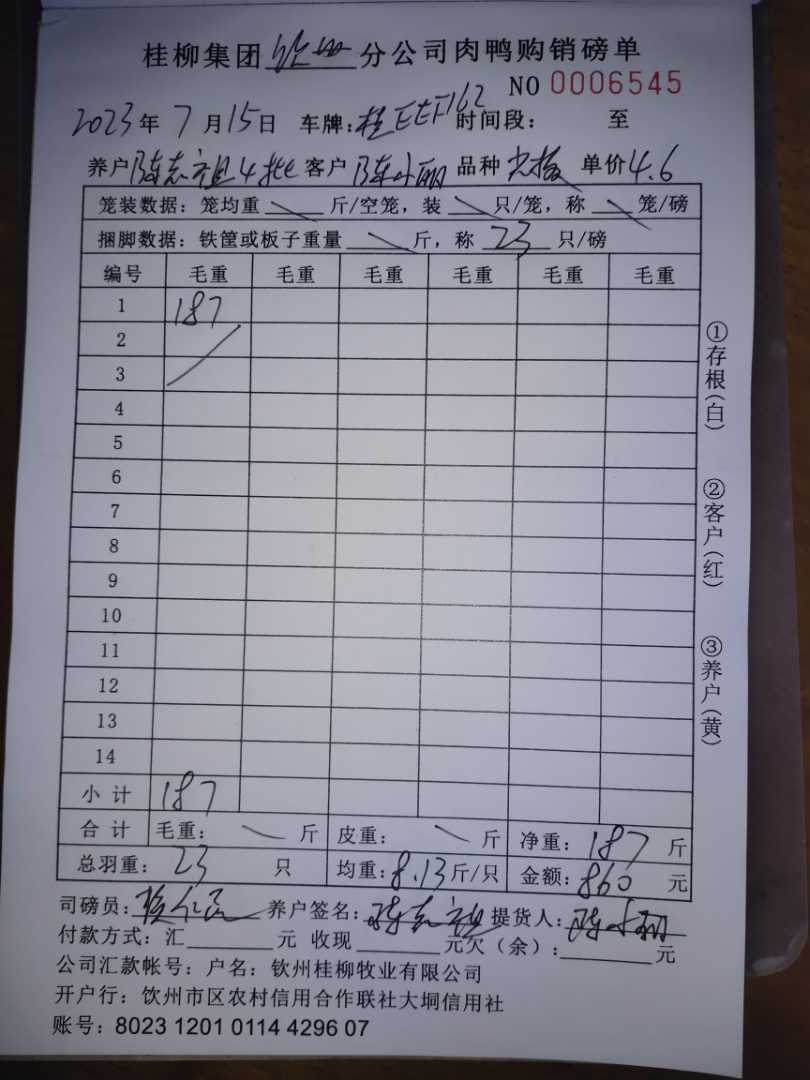 桂柳集团 钦州 分公司肉鸭购销磅单
NO 0006545
2023年 7月15日 车牌: 时间段: 至
养户 陈志祖4批 客户 陈小丽 品种 单价4.6
笼装数据: 笼均重 \ 斤/空笼, 装 \ 只/笼, 称 \ 笼/磅
捆脚数据: 铁筐或板子重量 \ 斤, 称 23 只/磅
编号 毛重 毛重 毛重 毛重 毛重 毛重
1 187
2
3
4
5
6
7
8
9
10
11
12
13
14
小计 187
合计 毛重: \ 斤 皮重: \ 斤 净重: 187 斤
总羽重: 23 只 均重: 8.13斤/只 金额: 860 元
司磅员: 养户签名: 陈志祖 提货人: 陈小丽
付款方式: 汇 元 收现 元欠(余): 元
公司汇款帐号: 户名: 钦州桂柳牧业有限公司
开户行: 钦州市区农村信用合作联社大垌信用社
账号: 8023 1201 0114 4296 07
①存根(白)
②客户(红)
③养户(黄)